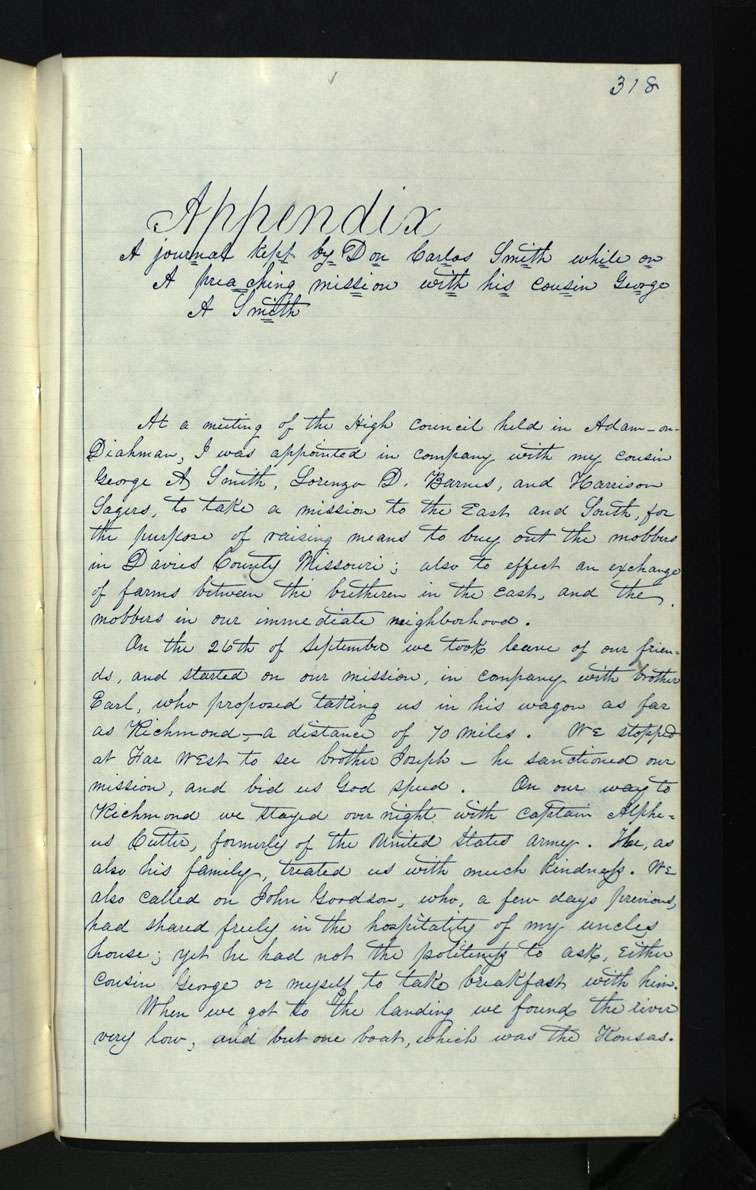 318
Appendix
A journal kept by Don Carlos Smith while on
A preaching mission with his cousin George
A Smith
At a meeting of the High council held in Adam-on-
Diahman, I was appointed in company with my cousin
George A Smith, Lorenzo D. Barnes, and Harrison
Sagers, to take a mission to the East and South, for
the purpose of raising means to buy out the mobbers
in Davies County Missouri; also to effect an exchange
of farms between the bretheren in the east, and the
mobbers in our immediate neighborhood.
On the 26th of September we took leave of our frien-
ds, and started on our mission, in company with brother
Earl, who proposed taking us in his wagon as far
as Richmond - a distance of 70 miles. We stopped
at Far West to see brother Joseph - he sanctioned our
mission, and bid us God speed. On our way to
Richmond we stayed over night with captain Alphe=
us Cutler, formerly of the United States army. He, as
also his family, treated us with much kindness. We
also called on John Goodson, who, a few days previous,
had shared freely in the hospitality of my uncles
house; yet he had not the politeness to ask, either
cousin George or myself to take breakfast with him.
When we got to the landing we found the river
very low, and but one boat, which was the Kansas.